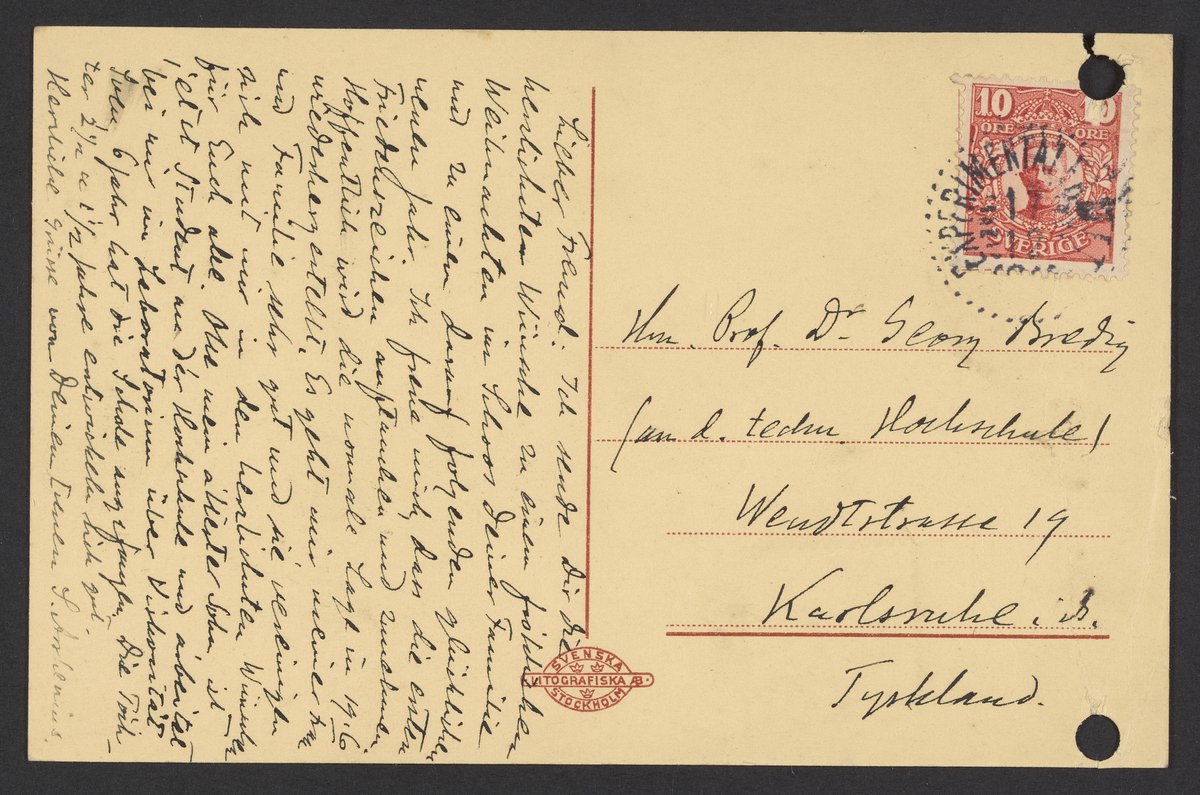 Lieber Freund! Ich sende Dir die
herzlichsten Wünsche zu einem fröhlichen
Weihnachten im Schoos Deiner Familie
und zu einem darauf folgenden glücklichen
neuen Jahr. Ich freue mich, dass die ersten
Friedenszeichen auftauchen und zunehmen
Hoffentlich wird die normale Lage in 1916
wiederhergestellt. Es geht mir meiner Frau
und Familie sehr gut und sie vereinigen
sich mit mir in den herzlichsten Wünschen
für Euch alle. Olle mein ältester Sohn ist
jetzt Student an der Hochschule und arbeitet
bei mir im Laboratorium über Viskosität
Sven 6 Jahr hat die Schule angefangen. Die Töch-
ter 2 1/2 u 1 1/2 Jahre entwickeln sich gut.
Herzliche Grüsse von Deinem treuen S. Arrhenius.
10 10
ÖRE ÖRE
SVERIGE
EXPERIMENTALFÄLTET
Hrn. Prof. Dr. Georg Bredig
(an d. techn. Hochschule)
Wendtstrasse 19
Karlsruhe i. B.
Tyskland.
SVENSKA
LITOGRAFISKA AB.
STOCKHOLM